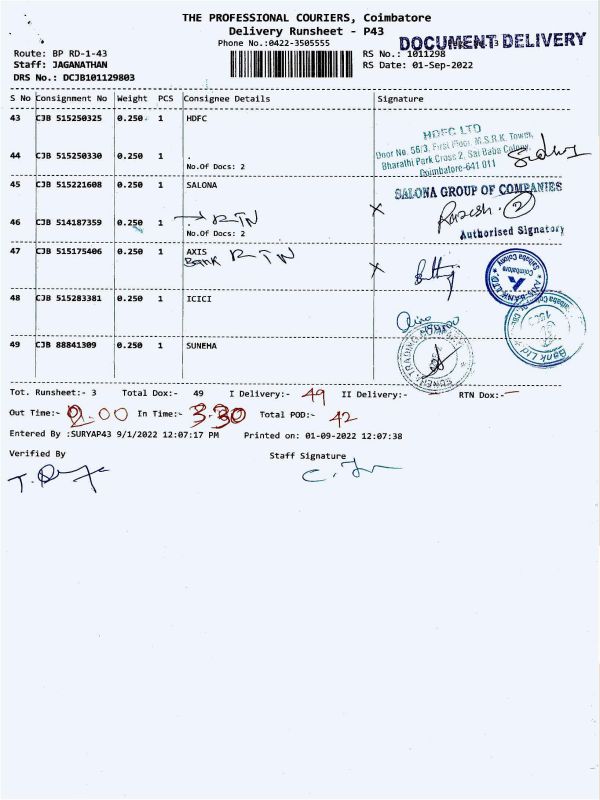 THE PROFESSIONAL COURIERS, Coimbatore
Delivery Runsheet - P43
Phone No.:0422-3505555
DOCUMENT DELIVERY
Route: BP RD-1-43
RS No.: 1011298
Staff: JAGANATHAN
RS Date: 01-Sep-2022
DRS No.: DCJB101129803
S No Consignment No Weight PCS Consignee Details Signature
43 CJB 515250325 0.250 1 HDFC
HDFC LTD
Door No. 56/3, First Floor, M.S.R.K. Tower,
Bharathi Park Cross 2, Sai Baba Colony,
Coimbatore-641 011
44 CJB 515250330 0.250 1 .
No.Of Docs: 2
45 CJB 515221608 0.250 1 SALONA
SALONA GROUP OF COMPANIES
46 CJB 514187359 0.250 1 . RTN
No.Of Docs: 2
Authorised Signatory
47 CJB 515175406 0.250 1 AXIS
BANK RTN
48 CJB 515283381 0.250 1 ICICI
49 CJB 88841309 0.250 1 SUNEHA
Tot. Runsheet:- 3 Total Dox:- 49 I Delivery:- 49 II Delivery:- RTN Dox:- —
Out Time:- 2.00 In Time:- 3.30 Total POD:- 42
Entered By :SURYAP43 9/1/2022 12:07:17 PM Printed on: 01-09-2022 12:07:38
Verified By Staff Signature